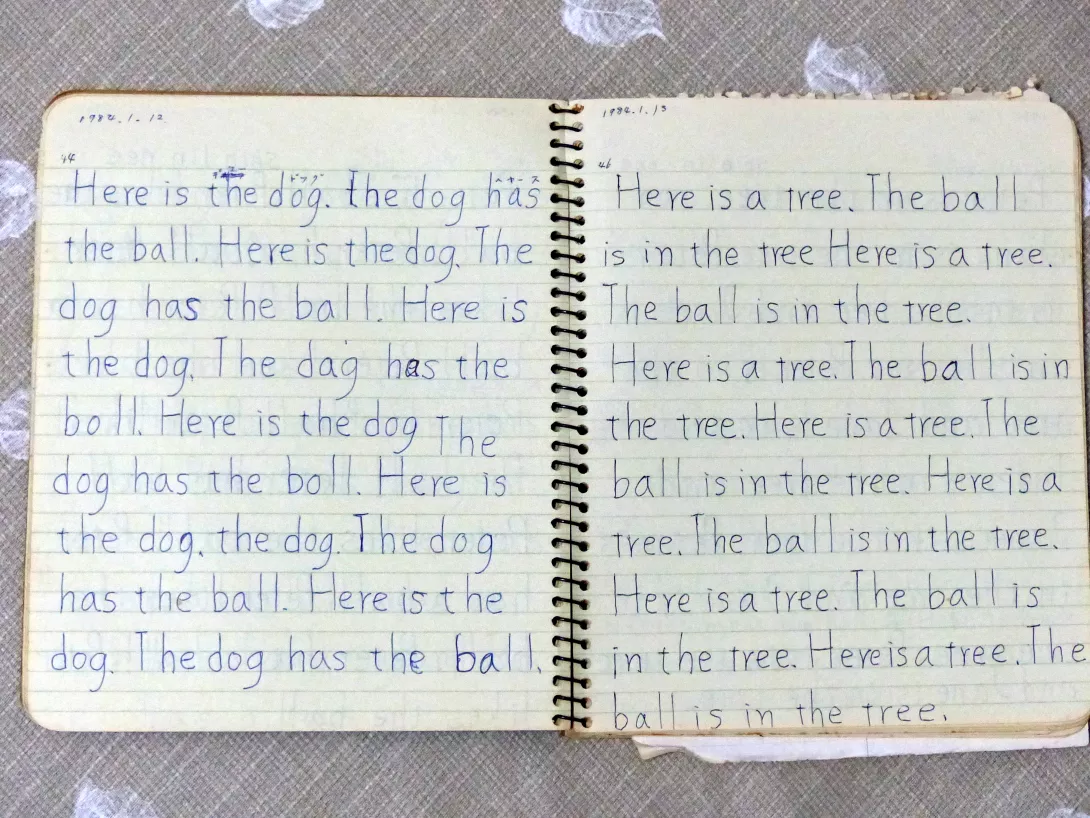 1984.1.12
44
ドッグ ハヤース
Here is the dog. the dog has
the ball. Here is the dog. The
dog has the ball. Here is
the dog. The dag has the
boll. Here is the dog The
dog has the boll. Here is
the dog. the dog. The dog
has the ball. Here is the
dog. The dog has the ball.
1984.1.13
46
Here is a tree. The ball
is in the tree Here is a tree.
The ball is in the tree.
Here is a tree. The ball is in
the tree. Here is a tree. The
ball is in the tree. Here is a
tree. The ball is in the tree.
Here is a tree. The ball is
in the tree. Here is a tree. The
ball is in the tree.